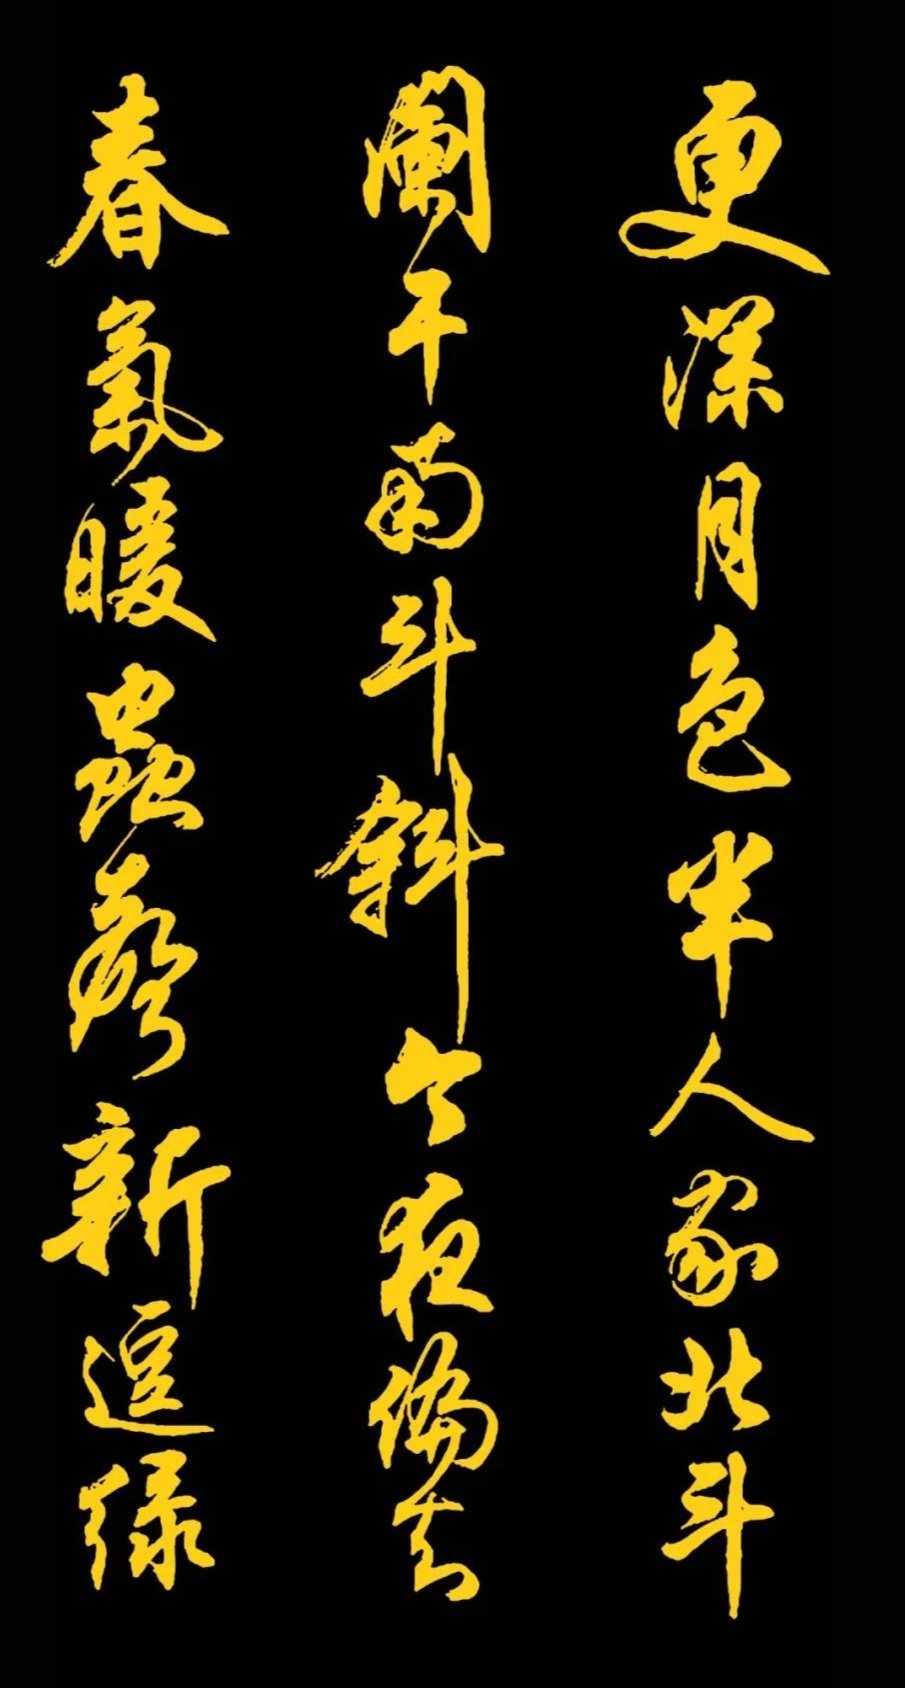 更深月色半人家北斗
闌干南斗斜今夜偏知
春氣暖蟲聲新逗緑